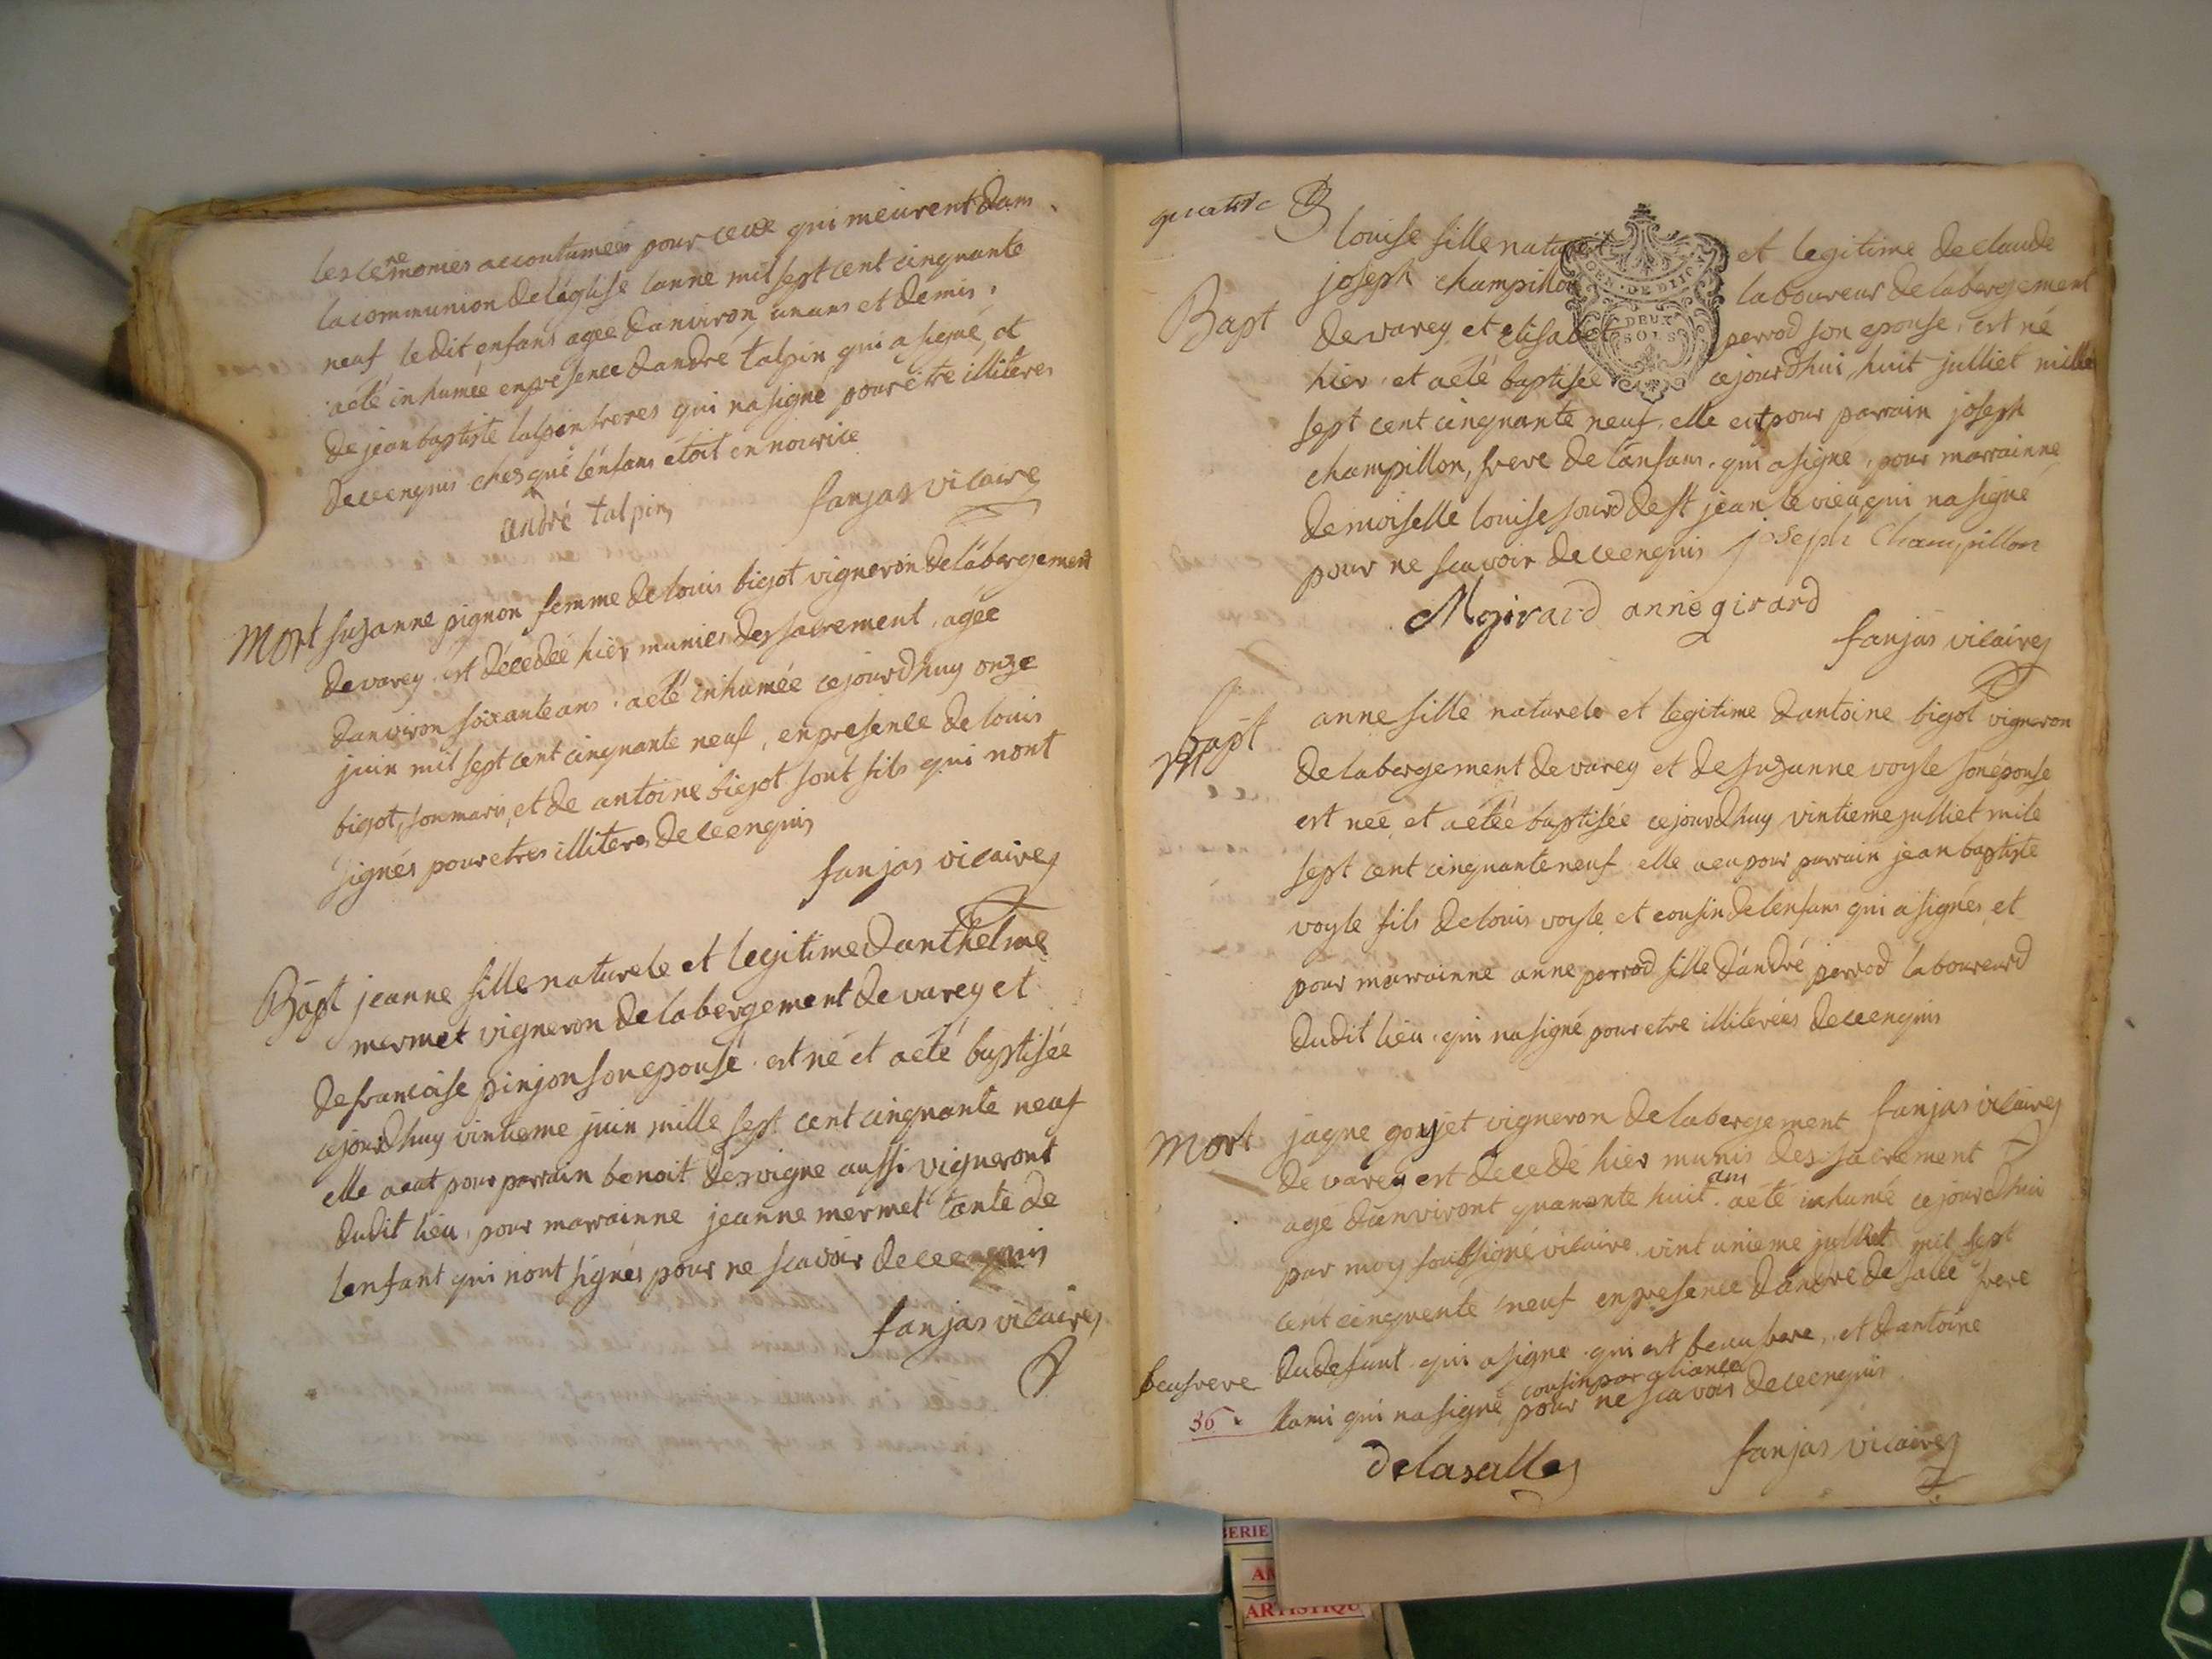 les ceremonies accoutumées pour ceux qui meurent dans
la communion de léglise lanné mil sept cent cinquante
neuf ledit enfans agée danviron unans et demis,
aété inhumée enpresence dandré talpin qui a signé, et
de jean baptiste talpin freres qui na signé pour être illiteres
de ce enquis chesqui lénfans étoit en nourice
andré talpin fanjas vicaire
Mort suzanne pignon femme de louis bigot vigneron de labergement
de varey est décedée hier munies des sacrement, agée
danviron soixante ans, aeté inhumée cejourdhuy onze
juin mil sept cent cinquante neuf, enpresence de louis
bigot, son maris, et de antoine bigot sont fils qui nont
signés pour etres illiteres de ce enquis
fanjas vicaire
Bapt jeanne fille naturele et legitime danthelme
mermet vigneron de labergement de varey et
de francoise pinjon son epouse est né et aeté baptisée
cejourdhuy vintieme juin mille sept cent cinquante neuf
elle aeut pour parrain benoit desvigne aussi vigneront
dudit lieu, pour marrainne jeanne mermet tante de
lenfant qui nont signés pour ne scavoir de ce enquis
fanjas vicaire
quatre
louise fille naturel et legitime de claude
joseph champillon laboureur de labergement
Bapt de varey et elisabet perrod son epouse, est né
hier, et aeté baptisée cejourdhui huit julliet mille
GEN · DE DIJON
DEUX
SOLS
sept cent cinquante neuf, elle eut pour parrain joseph
champillon, frere de lanfans, qui a signé, pour marrainne
demoiselle louise sourd de st jean le vieu, qui na signé
pour ne scavoir de ce enquis joseph Champillon
M girard anne girard
fanjas vicaire
Bapt anne fille naturele et legitime dantoine bigot vigneron
de labergement de varey et de suzanne voyle son épouse
est née et aétée baptisée cejourdhuy vintieme julliet mile
sept cent cinquante neuf elle aeu pour parrain jean baptiste
voyle fils de louis voyle et cousin de lenfans qui a signés et
pour marrainne anne perrod fille dandré perrod laboureurd
dudit lieu qui na signé pour etre illiterées de ce enquis
fanjas vicaire
Mort jaque goujet vigneron de labergement
de varey est decedé hier munis des sacrement
agé danviront quarente huit ans aeté inhumé cejourdhui
par moy soubsigné vicaire vint unieme julliet mil sept
cent cinquente neuf enpresence dandre de salle frere
beufrere dudefunt qui a signe qui est beau frere, et dantoine
36 lami qui na signé cousin par aliance pour ne scavoir de ce enquis
delasalle fanjas vicaire
BERIE
AM
ARTISTIQU